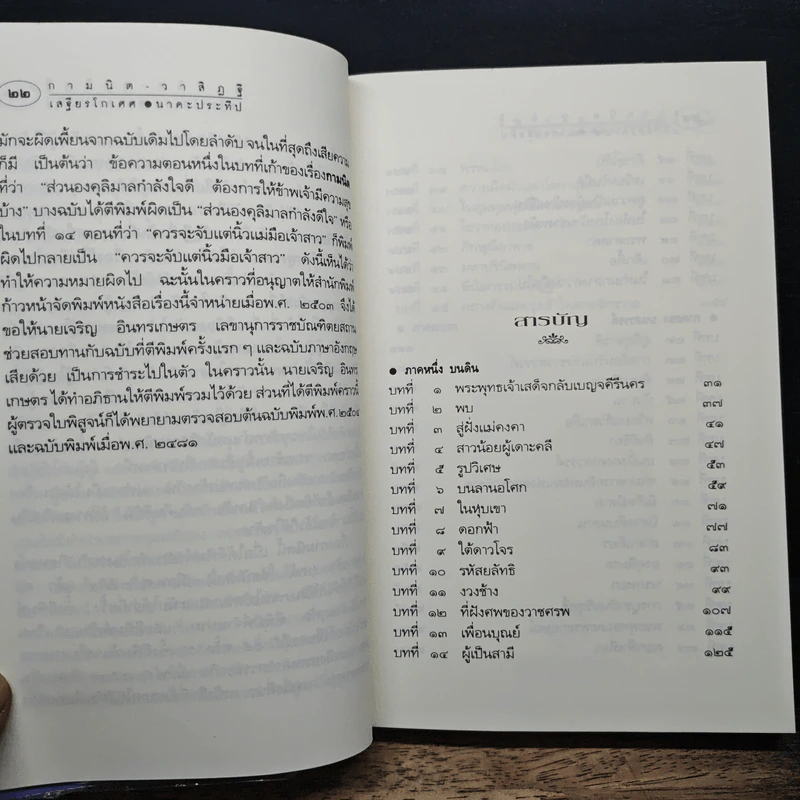 ๒๒
กามนิต - วาสิฏฐี
เสฐียรโกเศศ ● นาคะประทีป
มักจะผิดเพี้ยนจากฉบับเดิมไปโดยลำดับ จนในที่สุดถึงเสียความ
ก็มี เป็นต้นว่า ข้อความตอนหนึ่งในบทที่เก้าของเรื่องกามนิต
ที่ว่า “ส่วนองคุลิมาลกำลังใจดี ต้องการให้ข้าพเจ้ามีความสุข
บ้าง” บางฉบับได้ตีพิมพ์ผิดเป็น “ส่วนองคุลิมาลกำลังดีใจ” หรือ
ในบทที่ ๑๔ ตอนที่ว่า “ควรจะจับแต่นิ้วแม่มือเจ้าสาว” ก็พิมพ์
ผิดไปกลายเป็น “ควรจะจับแต่นิ้วมือเจ้าสาว” ดังนี้เห็นได้ว่า
ทำให้ความหมายผิดไป ฉะนั้นในคราวที่อนุญาตให้สำนักพิมพ์
ก้าวหน้าจัดพิมพ์หนังสือเรื่องนี้จำหน่ายเมื่อพ.ศ. ๒๕๐๓ จึงได้
ขอให้นายเจริญ อินทรเกษตร เลขานุการราชบัณฑิตยสถาน
ช่วยสอบทานกับฉบับที่ตีพิมพ์ครั้งแรก ๆ และฉบับภาษาอังกฤษ
เสียด้วย เป็นการชำระไปในตัว ในคราวนั้น นายเจริญ อินทร
เกษตร ได้ทำอภิธานให้ตีพิมพ์รวมไว้ด้วย ส่วนที่ได้ตีพิมพ์คราวนี้
ผู้ตรวจใบพิสูจน์ก็ได้พยายามตรวจสอบต้นฉบับพิมพ์พ.ศ.
และฉบับพิมพ์เมื่อพ.ศ. ๒๔๘๑
สารบัญ
● ภาคหนึ่ง บนดิน
บทที่ ๑ พระพุทธเจ้าเสด็จกลับเบญจคีรีนคร ๓๑
บทที่ ๒ พบ ๓๗
บทที่ ๓ สู่ฝั่งแม่คงคา ๔๑
บทที่ ๔ สาวน้อยผู้เดาะคลี ๔๗
บทที่ ๕ รูปวิเศษ ๕๓
บทที่ ๖ บนลานอโศก ๕๙
บทที่ ๗ ในหุบเขา ๗๑
บทที่ ๘ ดอกฟ้า ๗๗
บทที่ ๙ ใต้ดาวโจร ๘๓
บทที่ ๑๐ รหัสยลัทธิ ๙๓
บทที่ ๑๑ งวงช้าง ๙๙
บทที่ ๑๒ ที่ฝังศพของวาชศรพ ๑๐๗
บทที่ ๑๓ เพื่อนบุณย์ ๑๑๕
บทที่ ๑๔ ผู้เป็นสามี ๑๒๕